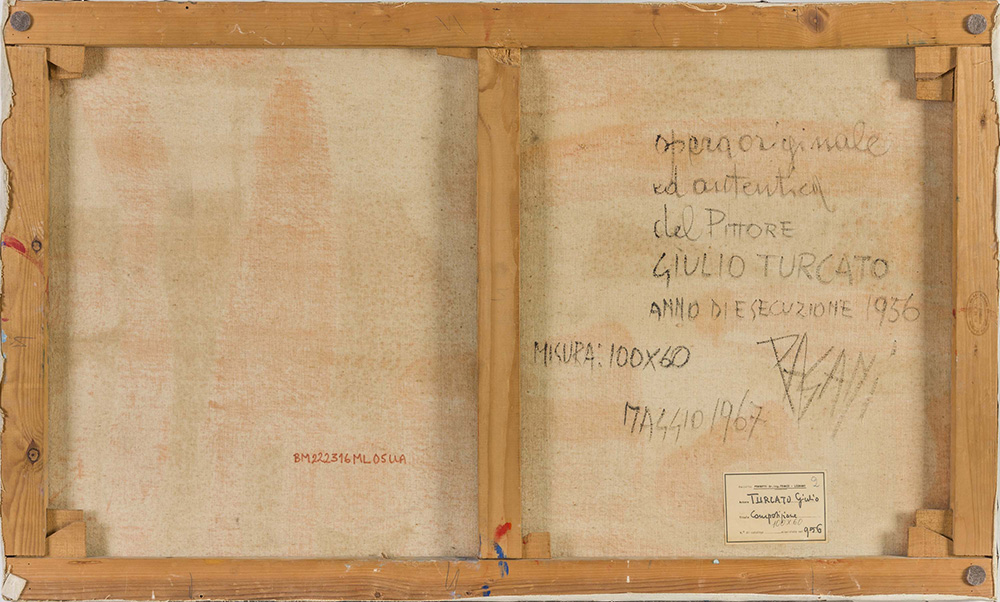 opera originale
ed autentica
del PITTORE
GIULIO TURCATO
ANNO DI ESECUZIONE 1956
MISURA: 100X60
PAGANI
MAGGIO 1967
BM222316ML05UA
2
TURCATO Giulio
Composizione
100x60
956